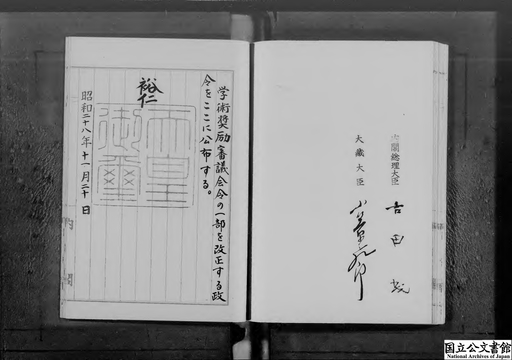 内閣総理大臣 吉田茂
大蔵大臣
学術奨励審議会令の一部を改正する政
令をここに公布する。
裕仁
天皇
御璽
昭和二十八年十一月二十日
国立公文書館
National Archives of Japan